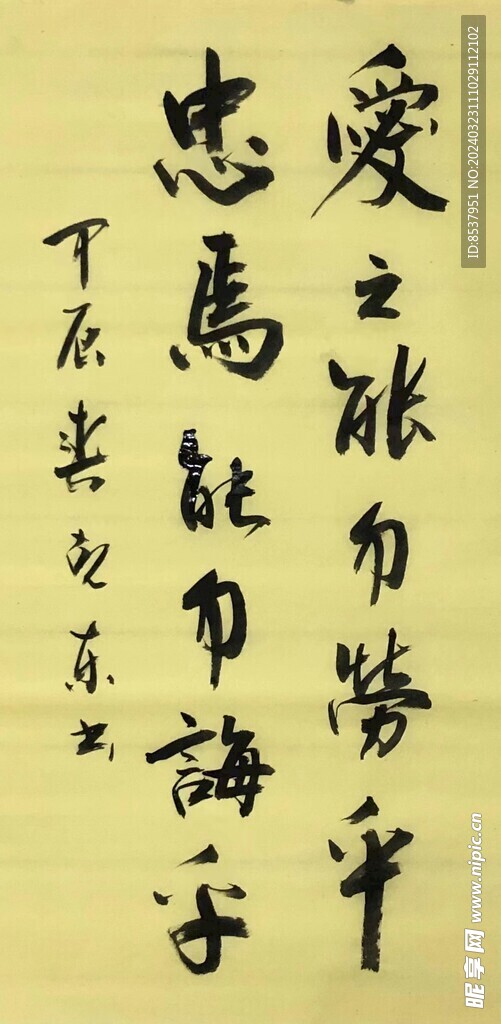 愛之能勿勞乎
忠焉能勿誨乎
甲辰春克東书
ID:8537951 NO:20240323111029112102
昵享网 www.nipic.cn